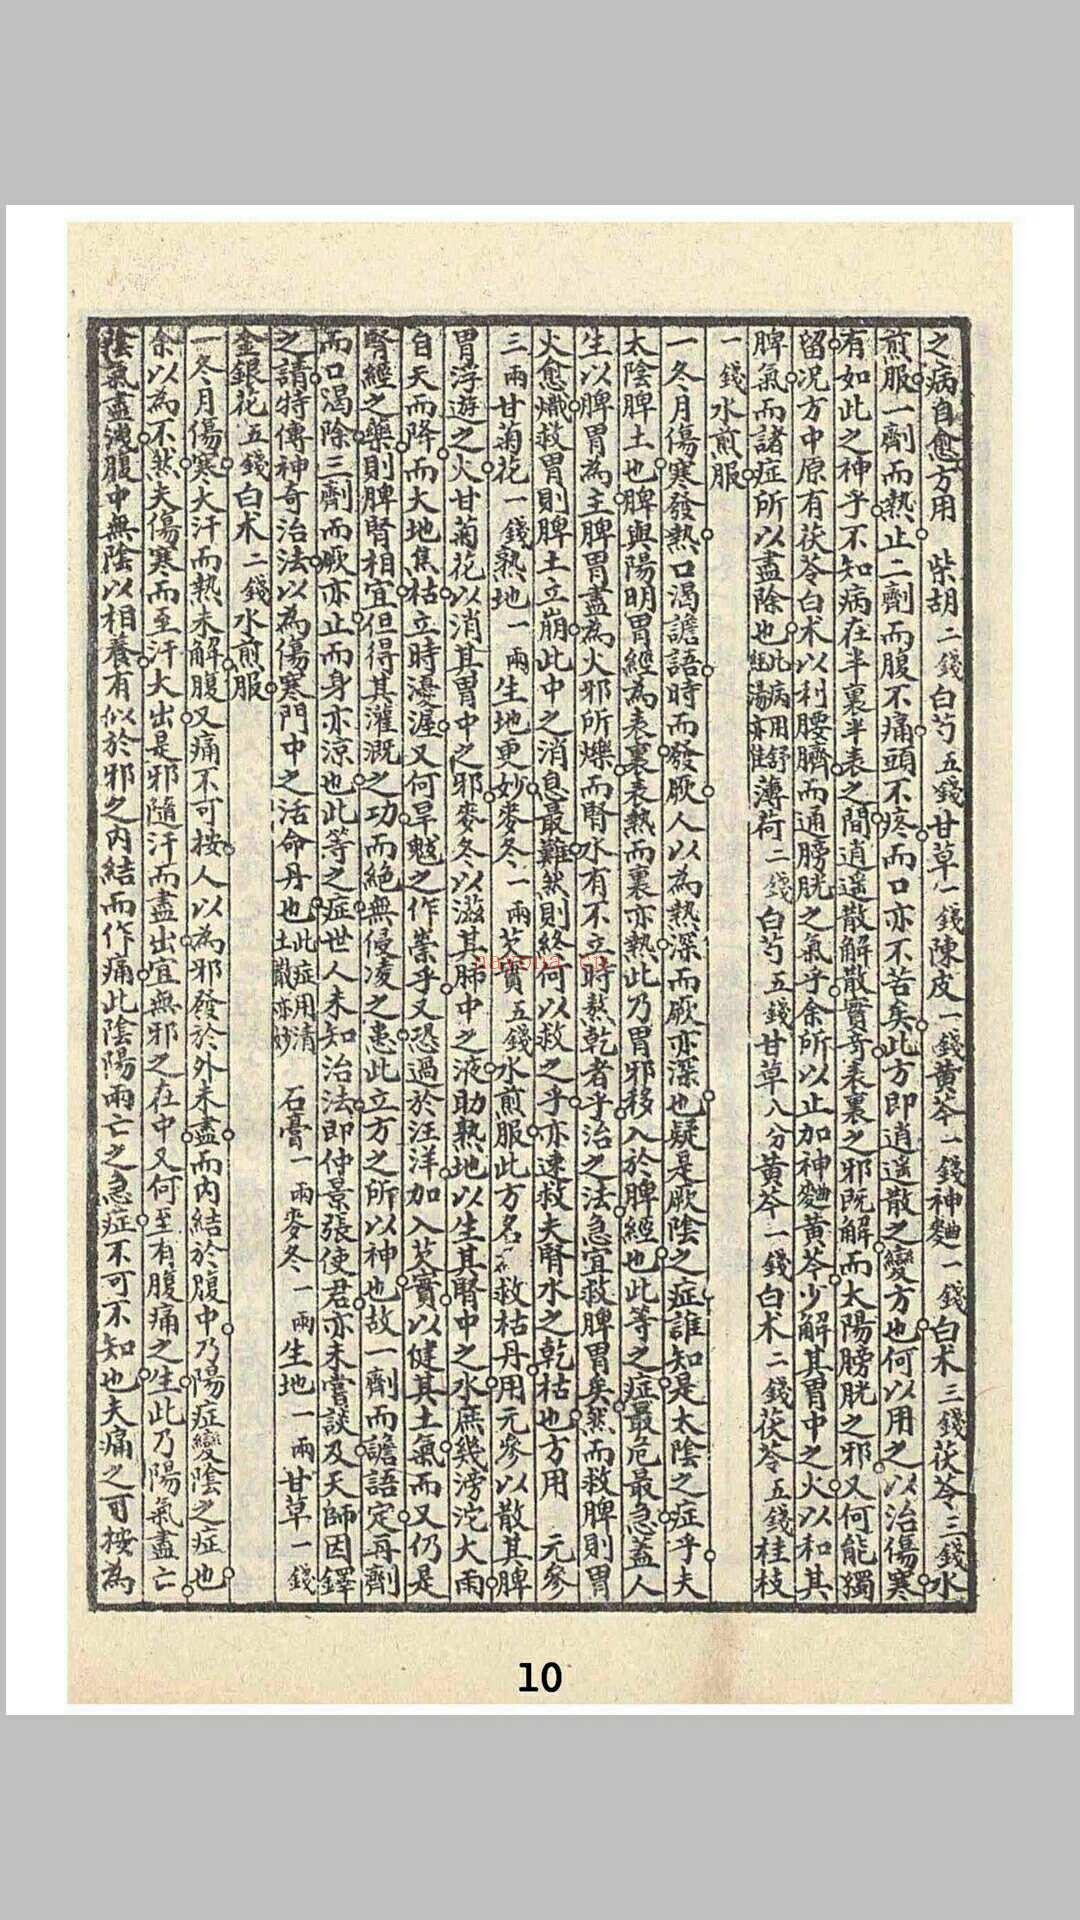 之病自愈方用　柴胡二錢白芍五錢甘草一錢陳皮一錢黃芩一錢神麯一錢白术三錢茯苓三錢水
煎服一劑而熱止二劑而腹不痛頭不疼而口亦不苦矣此方即逍遥散之變方也何以用之以治傷寒
有如此之神乎不知病在半裏半表之間逍遥散解散實奇表裏之邪既解而太陽膀胱之邪又何能獨
留况方中原有茯苓白术以利腰臍而通膀胱之氣乎余所以止加神麯黃芩少解其胃中之火以和其
脾氣而諸症所以盡除也此病用舒經湯亦佳薄荷二錢白芍五錢甘草八分黃芩一錢白术二錢茯苓五錢桂枝
一錢水煎服
一冬月傷寒發熱口渴譫語時而發厥人以為熱深而厥亦深也疑是厥陰之症誰知是太陰之症乎夫
太陰脾土也脾與陽明胃經為表裏表熱而裏亦熱此乃胃邪移入於脾經也此等之症最危最急蓋人
生以脾胃為主脾胃盡為火邪所爍而腎水有不立時熬乾者乎治之法急宜救脾胃矣然而救脾則胃
火愈熾救胃則脾土立崩此中之消息最難然則終何以救之乎亦速救夫腎水之乾枯也方用　元參
三兩甘菊花一錢熟地一兩生地更妙麥冬一兩芡實五錢水煎服此方名救枯丹用元參以散其脾
胃浮遊之火甘菊花以消其胃中之邪麥冬以滋其肺中之液助熟地以生其腎中之水庶幾滂沱大雨
自天而降而大地焦枯立時濅渥又何旱魃之作祟乎又恐過於汪洋加入芡實以健其土氣而又仍是
腎經之藥則脾腎相宜但得其灌溉之功而絕無侵凌之患此立方之所以神也故一劑而譫語定再劑
而口渴除三劑而厥亦止而身亦涼也此等之症世人未知治法即仲景張使君亦未嘗談及天師因鐸
之請特傳神奇治法以為傷寒門中之活命丹也此症用清土散亦妙　石膏一兩麥冬一兩生地一兩甘草一錢
金銀花五錢白术二錢水煎服
一冬月傷寒大汗而熱未解腹又痛不可按人以為邪發於外未盡而内結於腹中乃陽症變陰之症也
余以為不然夫傷寒而至汗大出是邪隨汗而盡出宜無邪之在中又何至有腹痛之生此乃陽氣盡亡
陰氣盡洩腹中無陰以相養有似於邪之内結而作痛此陰陽兩亡之急症不可不知也夫痛之可按為
10
nayona.cn